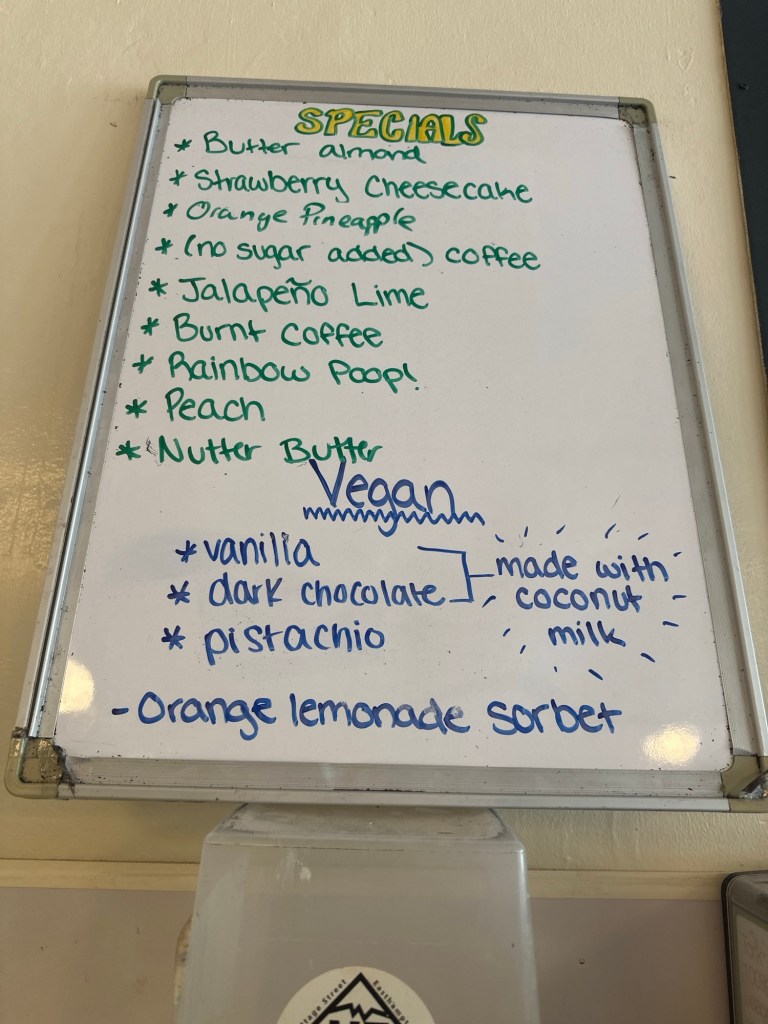 SPECIALS
* Butter almond
* Strawberry Cheesecake
* Orange Pineapple
* (no sugar added) coffee
* Jalapeño Lime
* Burnt Coffee
* Rainbow Poop!
* Peach
* Nutter Butter
Vegan
* vanilla
* dark chocolate
* pistachio
made with
coconut
milk
- Orange lemonade sorbet